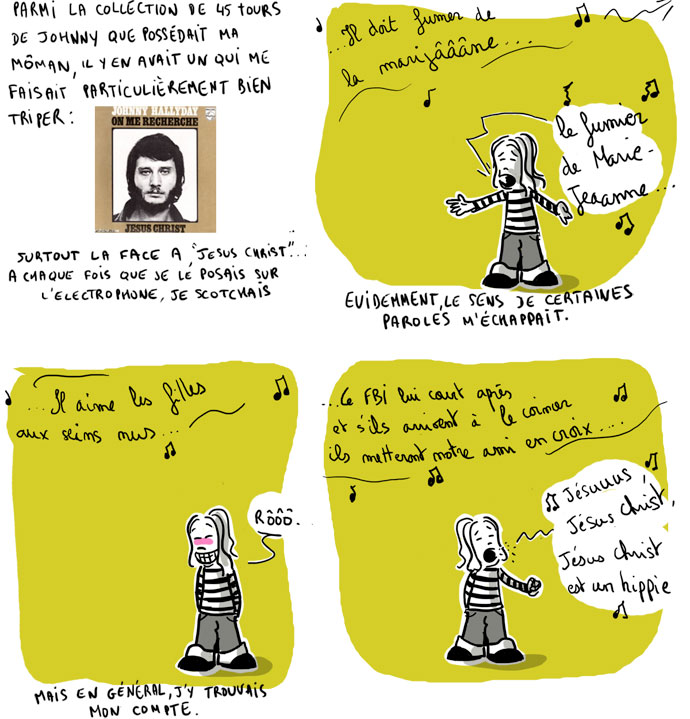 PARMI LA COLLECTION DE 45 TOURS
DE JOHNNY QUE POSSÉDAIT MA
MÔMAN, IL Y EN AVAIT UN QUI ME
FAISAIT PARTICULIÈREMENT BIEN
TRIPER :
JOHNNY HALLYDAY
ON ME RECHERCHE
JESUS CHRIST
SURTOUT LA FACE A, "JESUS CHRIST"...
A CHAQUE FOIS QUE JE LE POSAIS SUR
L'ELECTROPHONE, JE SCOTCHAIS
...Il doit fumer de
la marijâââne....
le fumier
de Marie-
Jeaanne...
EVIDEMMENT, LE SENS DE CERTAINES
PAROLES M'ÉCHAPPAIT.
...Il aime les filles
aux seins nus...
RÔÔÔ.
MAIS EN GÉNÉRAL, J'Y TROUVAIS
MON COMPTE.
...Le FBI lui court après
et s'ils arrivent à le coincer
ils metteront notre ami en croix....
Jésuuus,
Jésus Christ,
Jésus Christ
est un hippie